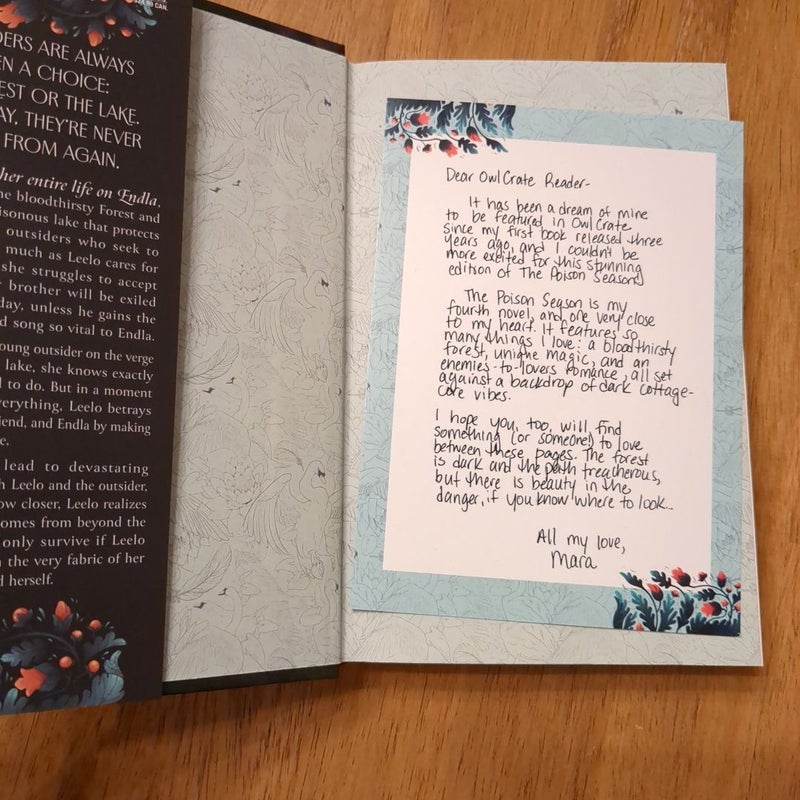 CAN.
DERS ARE ALWAYS
EN A CHOICE:
EST OR THE LAKE.
AY, THEY'RE NEVER
FROM AGAIN.
her entire life on Endla,
he bloodthirsty Forest and
isonous lake that protects
outsiders who seek to
much as Leelo cares for
she struggles to accept
r brother will be exiled
day, unless he gains the
d song so vital to Endla.
oung outsider on the verge
lake, she knows exactly
d to do. But in a moment
verything, Leelo betrays
iend, and Endla by making
e.
lead to devastating
h Leelo and the outsider,
ow closer, Leelo realizes
omes from beyond the
only survive if Leelo
n the very fabric of her
d herself.
Dear OwlCrate Reader-
It has been a dream of mine
to be featured in OwlCrate
since my first book released three
years ago, and I couldn't be
more excited for this stunning
edition of The Poison Season!
The Poison Season is my
fourth novel, and one very close
to my heart. It features so
many things I love: a bloodthirsty
forest, unique magic, and an
enemies-to-lovers romance, all set
against a backdrop of dark cottage-
core vibes.
I hope you, too, will find
something (or someone!) to love
between these pages. The forest
is dark and the path treacherous,
but there is beauty in the
danger, if you know where to look...
All my love,
Mara